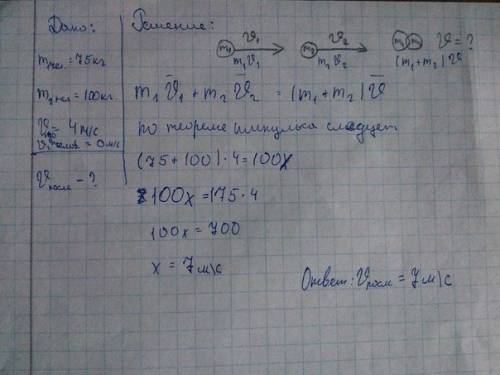 Дано:
m чел. = 75 кг
m тел = 100 кг
= 4 м/с
= 0 м/с
𝒱 посл – ?
Решение:
m₁ 𝒱₁ m₁𝒱₁ m₂ 𝒱₂ m₁𝒱₂ m₁ m₂ 𝒱 = ? (m₁+m₂)𝒱
m₁𝒱̄₁ + m₂𝒱̄₂ = (m₁+m₂)𝒱̄
по теореме импульса следует
(75+100)·4=100x
100x=175·4
100x = 700
x = 7 м\с
Ответ: 𝒱посл = 7 м\с